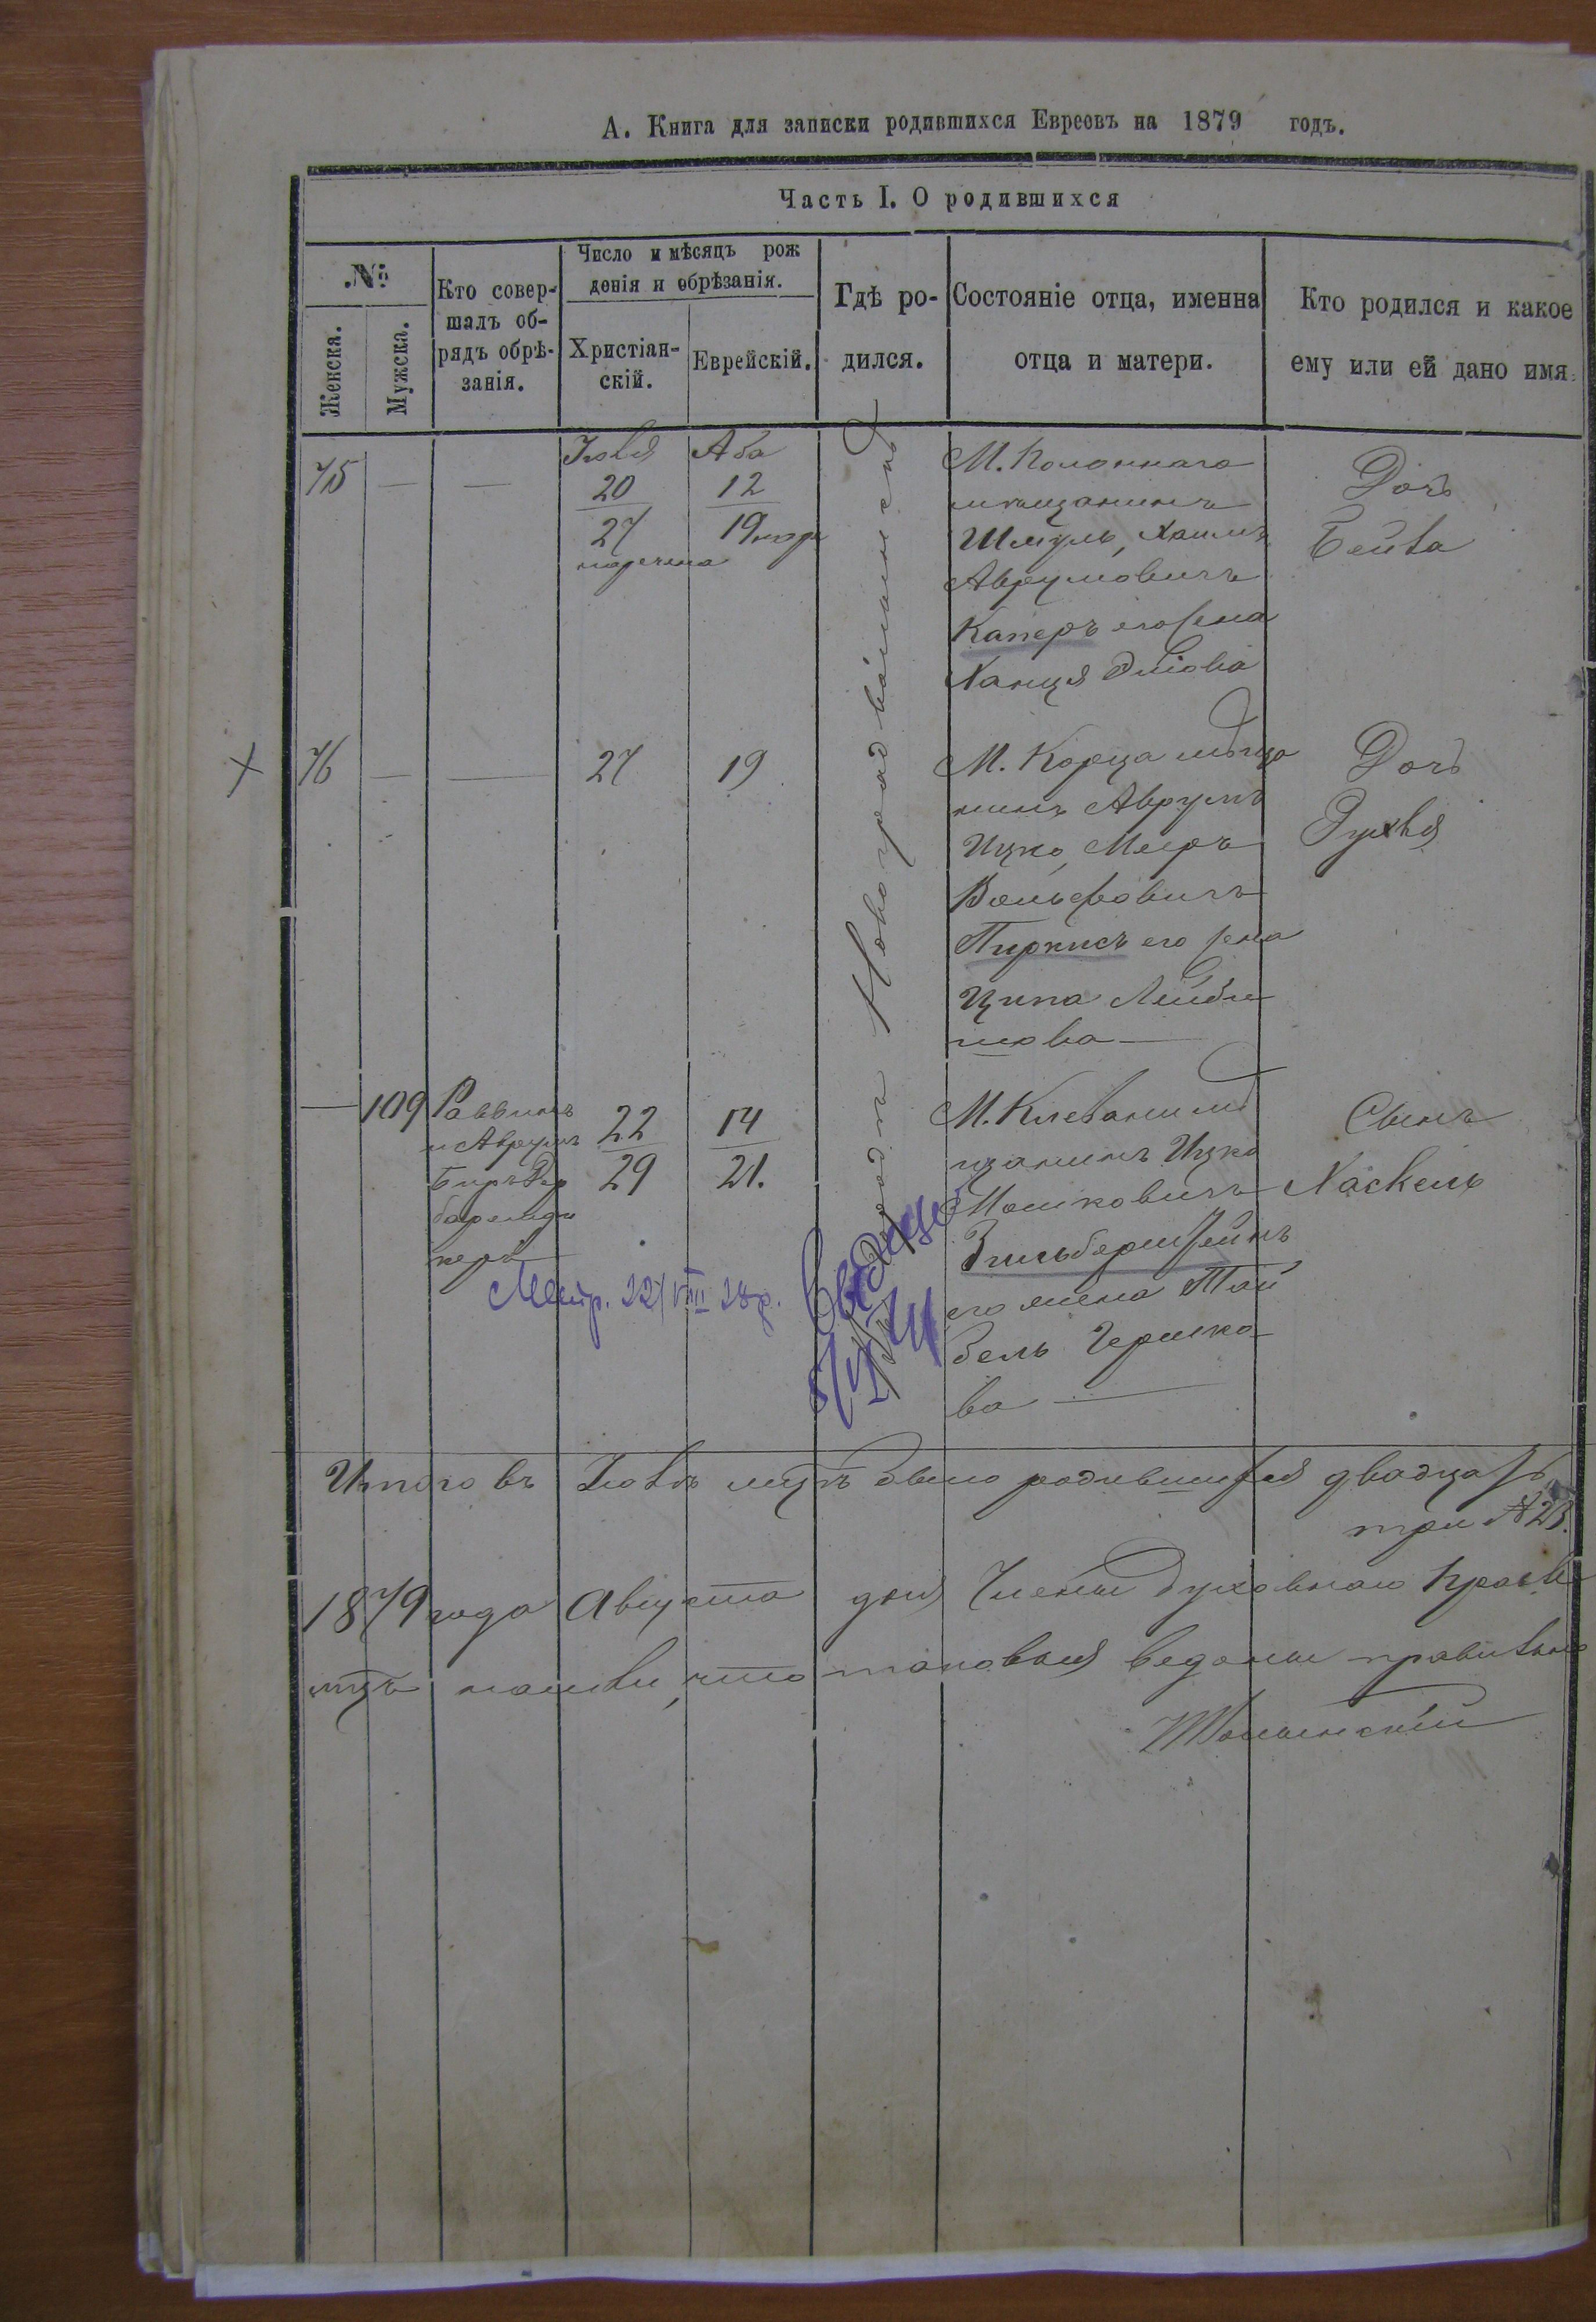 А. Книга для записки родившихся Евреевъ на 1879 годъ.
Часть I. О родившихся
№
Женска.
Мужска.
Кто совер-
шалъ об-
рядъ обрѣ-
занія.
Число и мѣсяцъ рож
денія и обрѣзанія.
Христіан-
скій.
Еврейскій.
Гдѣ ро-
дился.
Состояніе отца, именна
отца и матери.
Кто родился и какое
ему или ей дано имя.
75 — —
Іюля
20
27
наречена
Аба
12
19
М.
мѣщанинъ
Шмуль, Хаимъ
Аврумовичъ
Каперъ его жена
Ханця
Дочь
Бейла
76 — —
27
19
М. Корца мѣща
нинъ Аврумъ
Ицко, Мееръ
Вольфовичъ
Пиркисъ его жена
Ципа Лейби
шова —
Дочь
Рухля
— 109
Раввинъ
и Аврумъ
22
29
14
21.
М. Клевани мѣ
щанинъ Ицко
Мошковичъ
Зильберштейнъ
его жена Тай
бель Гершко
ва —
Сынъ
Хаскель
Метр. 22/VIII 28р.
Итого въ Іюлѣ мцѣ было родившихся двадцать
три № 23.
1879 года Августа дня Члены Духовнаго Правле
нашли, что таковыя ведены правильно